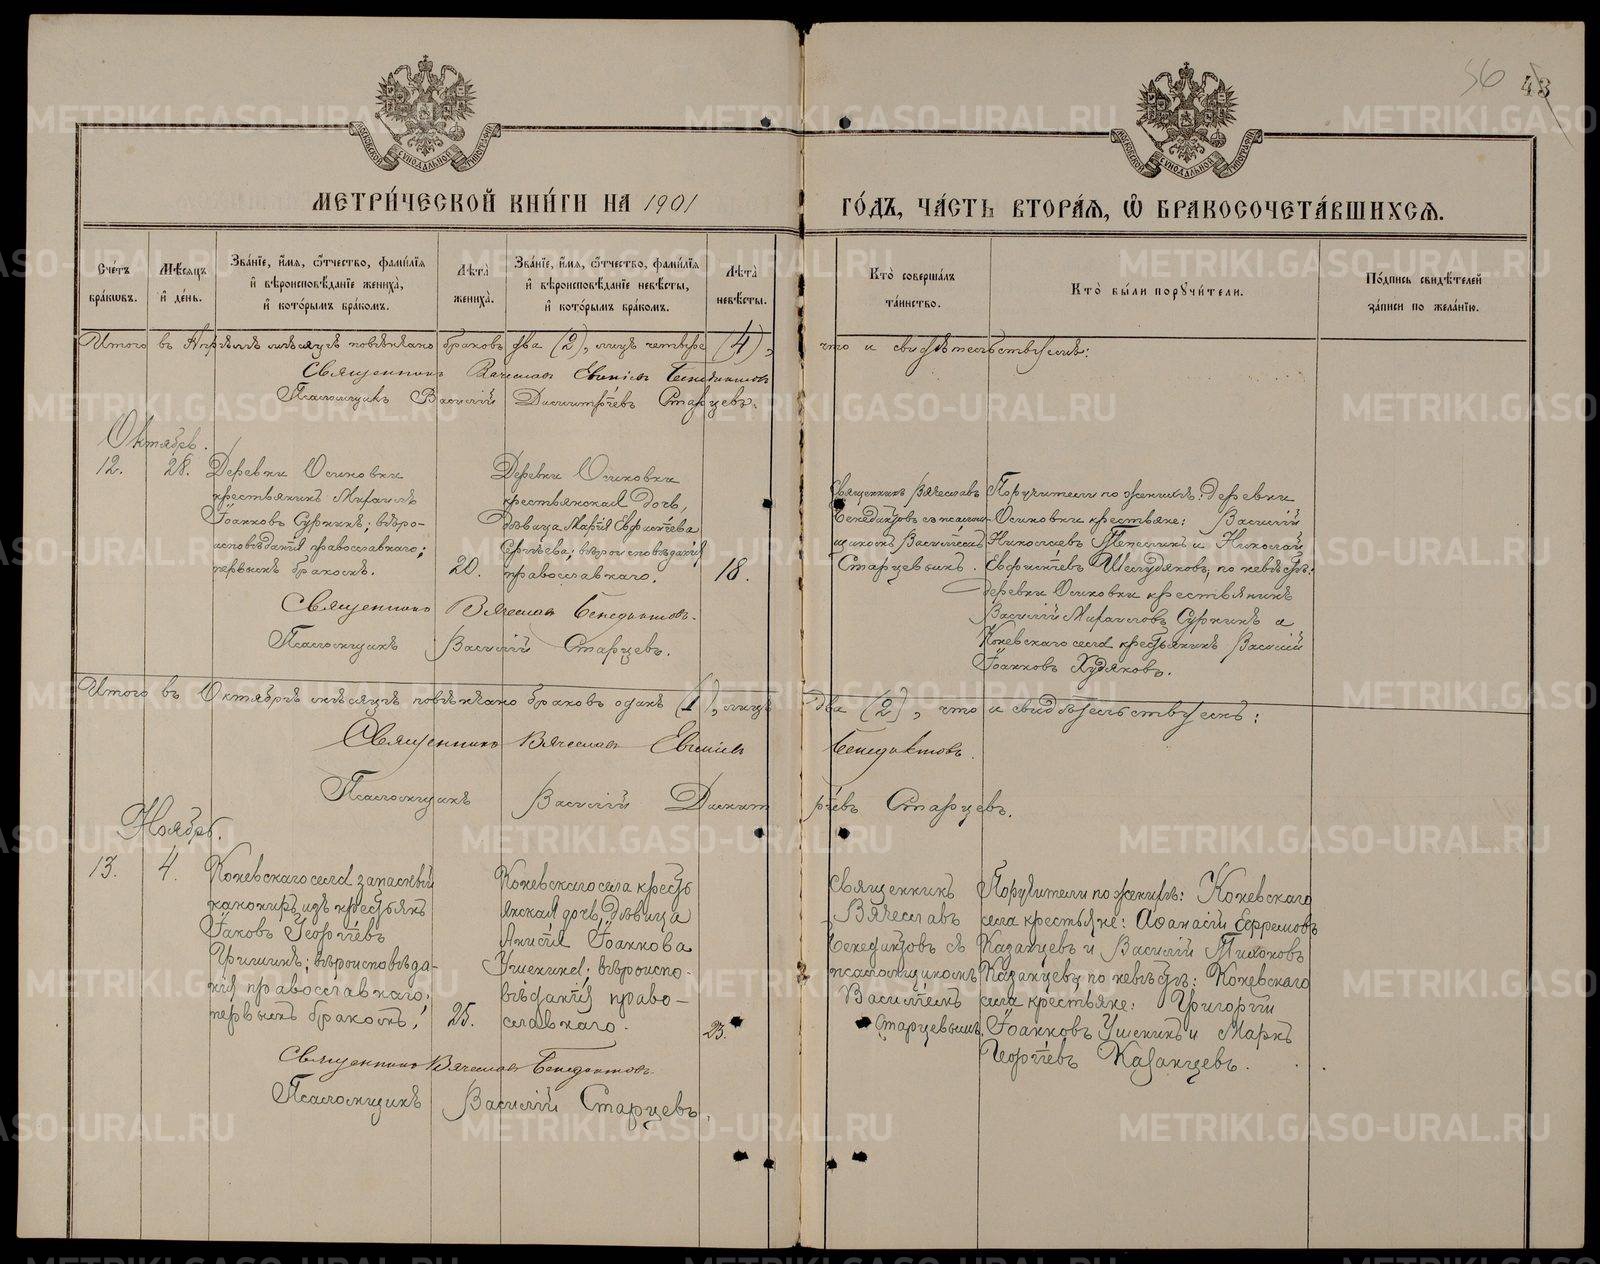 56 43
МОСКОВСКОЙ СѴНОДАЛЬНОЙ ТИПОГРАФІИ
МОСКОВСКОЙ СѴНОДАЛЬНОЙ ТИПОГРАФІИ
МЕТРИ́ЧЕСКОЙ КНИ́ГИ НА 1901
ГО́ДЪ, ЧА́СТЬ ВТОРА́Я, Ѡ БРАКОСОЧЕТА́ВШИХСЯ.
Сче́тъ
бра́ковъ.
Мѣ́сяцъ
и҆ де́нь.
Зва́нїе, и҆́мя, ѻ҆́тчество, фами́лїя
и҆ вѣроисповѣ́данїе жениха̀,
и҆ кото́рымъ бра́комъ.
Лѣта̀
жениха̀.
Зва́нїе, и҆́мя, ѻ҆́тчество, фами́лїя
и҆ вѣроисповѣ́данїе невѣ́сты,
и҆ кото́рымъ бра́комъ.
Лѣта̀
невѣ́сты.
Кто̀ соверша́лъ
та́инство.
Кто̀ бы́ли порꙋчи́тели.
По́дпись свидѣ́телей
за́писи по жела́нїю.
Итого въ Апрѣлѣ мѣсяцѣ повѣнчано браковъ два (2), лицъ четыре (4),
что и свидѣтельствуемъ:
Священникъ Вячеславъ Евгеніевъ Бенедиктовъ
Псаломщикъ Василій Димитріевъ Старцевъ.
Октябрь.
12.
28.
Деревни Осиновки
крестьянинъ Михаилъ
Іоанновъ Суркинъ; вѣро-
исповѣданія православнаго;
первымъ бракомъ.
20.
Деревни Осиновки
крестьянская дочь,
дѣвица Марія Евфимиева
Сергѣева; вѣроисповѣданія
православнаго.
18.
Священникъ Вячеславъ
Бенедиктовъ съ псалом-
щикомъ Василіемъ
Старцевымъ.
Поручители по женихѣ: деревни
Осиновки крестьяне: Василій
Николаевъ и Николай
Шелудяковъ, по невѣстѣ:
деревни Осиновки крестьянинъ
Василій Михаиловъ Суркинъ а
Коневскаго села крестьянинъ Василій
Іоанновъ Худяковъ.
Священникъ Вячеславъ Бенедиктовъ.
Псаломщикъ Василій Старцевъ.
Итого въ Октябрѣ мѣсяцѣ повѣнчано браковъ одинъ (1), лицъ
два (2), что и свидѣтельствуемъ:
Священникъ Вячеславъ Евгеніевъ Бенедиктовъ.
Псаломщикъ Василій Димитріевъ Старцевъ.
Ноябрь.
13.
4.
Коневскаго села запасный
канониръ изъ крестьянъ
Іаковъ Георгіевъ
вѣроисповѣда-
нія православнаго;
первымъ бракомъ;
25.
Коневскаго села кресть
янская дочь, дѣвица
Анисія Іоаннова
вѣроиспо-
вѣданія право-
славнаго.
23.
Священникъ
Вячеславъ
Бенедиктовъ съ
псаломщикомъ
Василіемъ
Старцевымъ.
Поручители по женихѣ: Коневскаго
села крестьяне: Аѳанасій Ефремовъ
Казанцевъ и Василій Тихоновъ
Казанцевъ, по невѣстѣ: Коневскаго
села крестьяне: Григорій
Іоанновъ и Маркъ
Георгіевъ Казанцевъ.
Священникъ Вячеславъ Бенедиктовъ.
Псаломщикъ Василій Старцевъ.
METRIKI.GASO-URAL.RU